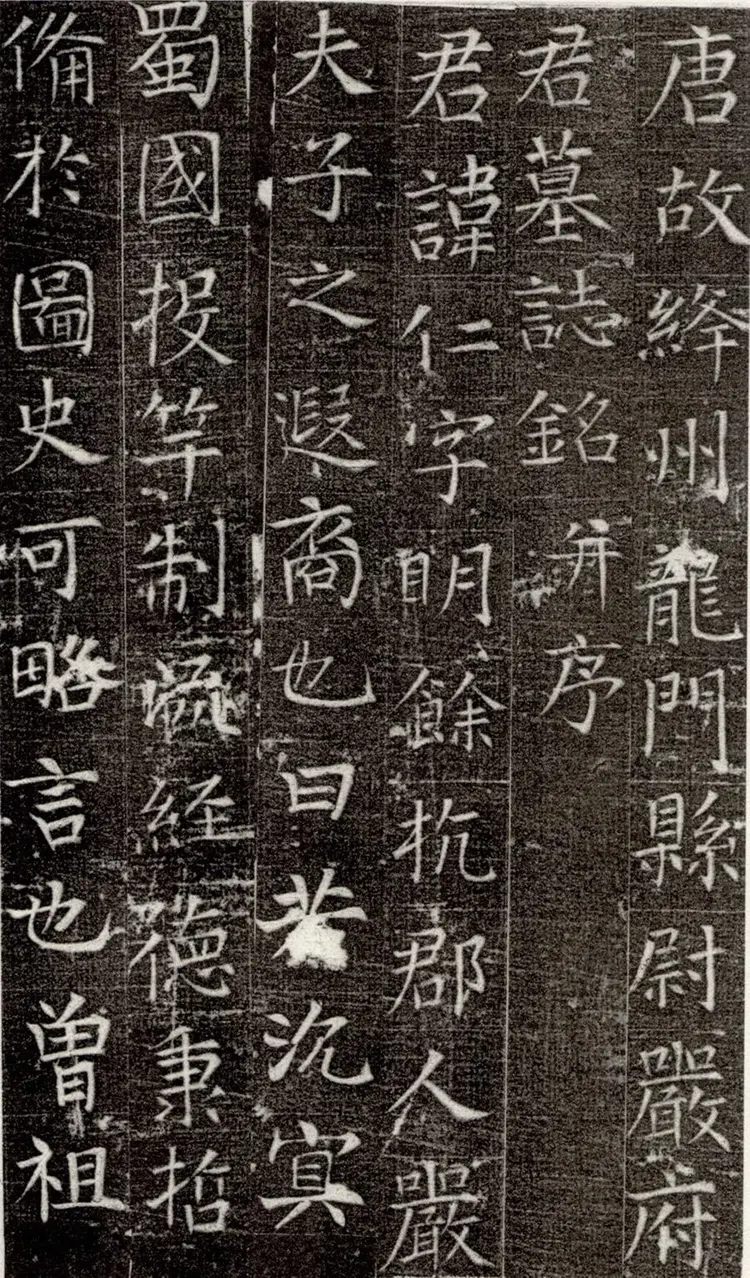 唐故絳州龍門縣尉嚴府
君墓誌銘并序
君諱仁字明餘杭郡人嚴
夫子之遐裔也曰若沉冥
蜀國投竿制 經德秉哲
備於圖史可略言也曾祖